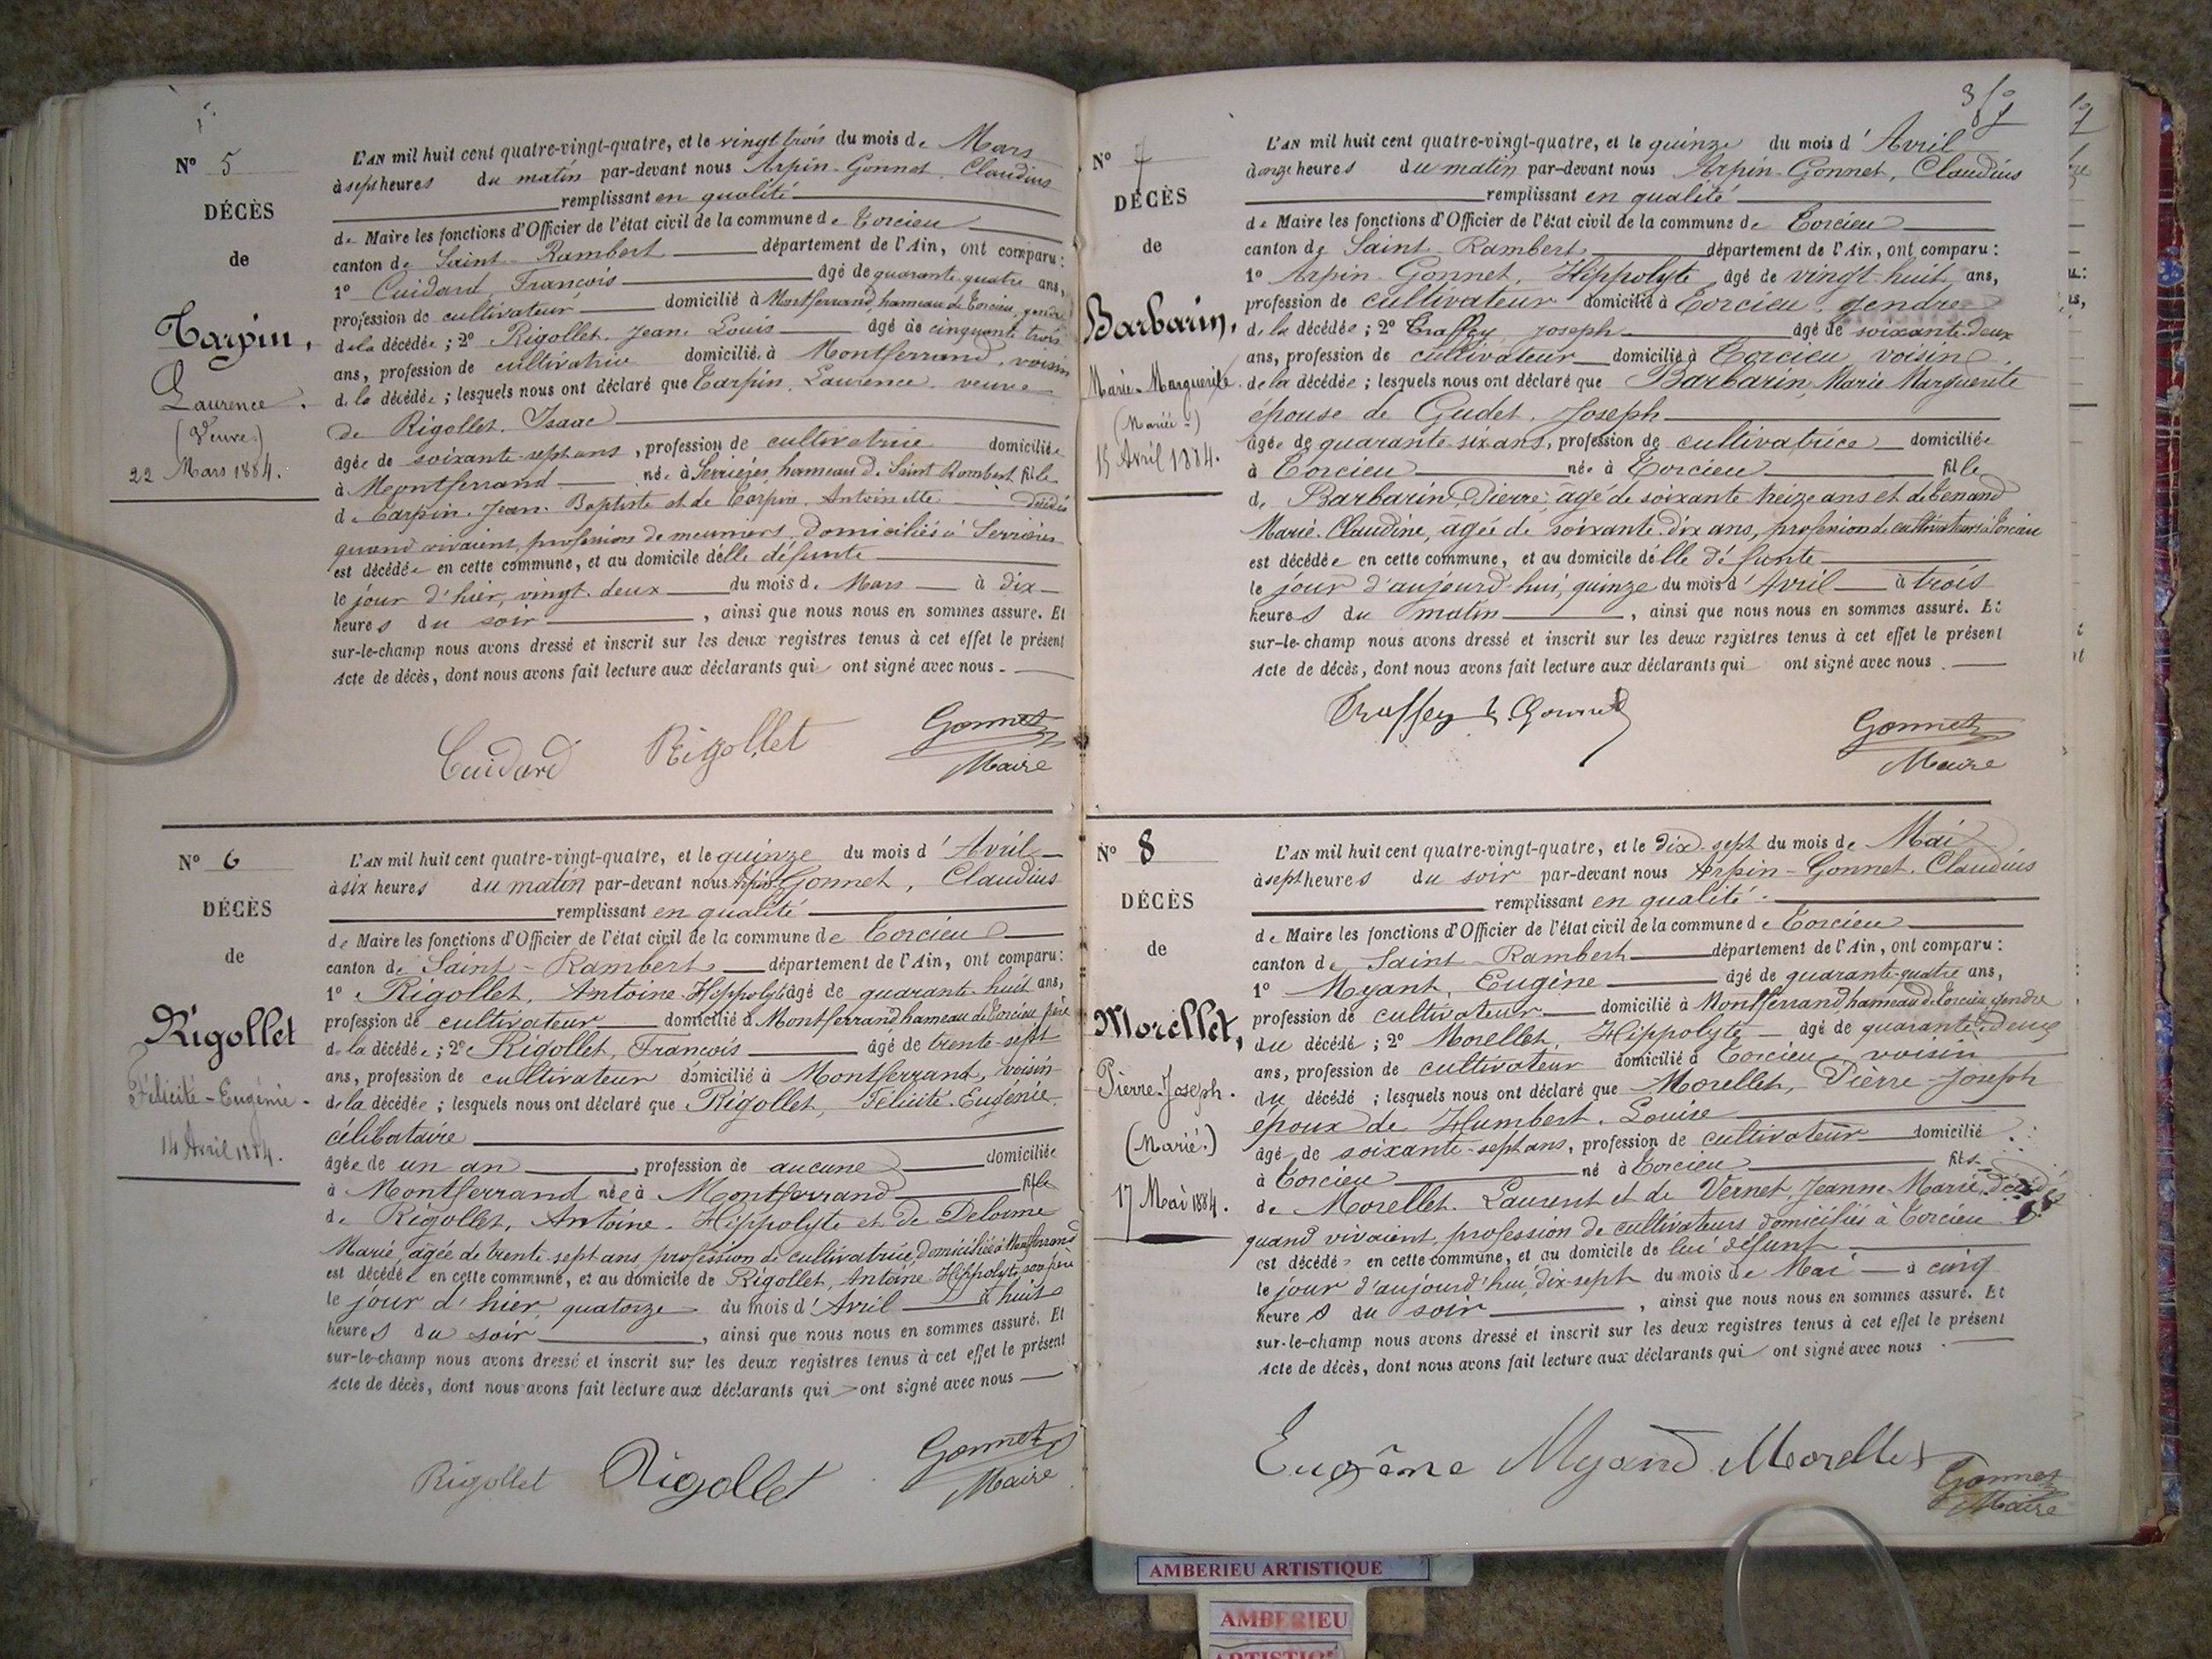 N° 5
DÉCÈS
de
Tarpin,
Laurence.
(Veuve.)
22 Mars 1884.
L'AN mil huit cent quatre-vingt-quatre, et le vingt trois du mois de Mars
à sept heures du matin par-devant nous Arpin-Gonnet, Claudius
remplissant en qualité
de Maire les fonctions d'Officier de l'état civil de la commune de Torcieu
canton de Saint-Rambert département de l'Ain, ont comparu:
1° Cuidard, François âgé de quarante-quatre ans,
profession de cultivateur domicilié à Montferrand, hameau de Torcieu, gendre
de la décédée; 2° Rigollet, Jean Louis âgé de cinquante trois
ans, profession de cultivatrice domicilié à Montferrand, voisin
de la décédée; lesquels nous ont déclaré que Tarpin, Laurence, veuve
de Rigollet, Isaac
âgée de soixante-sept ans, profession de cultivatrice domiciliée
à Montferrand née à Serrières, hameau de Saint Rambert fille
de Tarpin, Jean-Baptiste et de Carpin, Antoinette décédés
quand vivaient, profession de meuniers, domiciliés à Serrières
est décédée en cette commune, et au domicile d'elle défunte
le jour d'hier, vingt-deux du mois de Mars à dix
heures du soir, ainsi que nous nous en sommes assuré. Et
sur-le-champ nous avons dressé et inscrit sur les deux registres tenus à cet effet le présent
Acte de décès, dont nous avons fait lecture aux déclarants qui ont signé avec nous.
Cuidard Rigollet Gonnet
Maire
N° 6
DÉCÈS
de
Rigollet
Félicité-Eugénie.
14 Avril 1884.
L'AN mil huit cent quatre-vingt-quatre, et le quinze du mois d'Avril
à six heures du matin par-devant nous Arpin-Gonnet, Claudius
remplissant en qualité
de Maire les fonctions d'Officier de l'état civil de la commune de Torcieu
canton de Saint-Rambert département de l'Ain, ont comparu:
1° Rigollet, Antoine-Hippolyte âgé de quarante-huit ans,
profession de cultivateur domicilié à Montferrand, hameau de Torcieu père
de la décédée; 2° Rigollet, François âgé de trente-sept
ans, profession de cultivateur domicilié à Montferrand, voisin
de la décédée; lesquels nous ont déclaré que Rigollet, Félicité-Eugénie
célibataire
âgée de un an, profession de aucune domiciliée
à Montferrand née à Montferrand fille
de Rigollet, Antoine-Hippolyte et de Delorme
Marie, âgée de trente-sept ans, profession de cultivatrice, domiciliée à Montferrand
est décédée en cette commune, et au domicile de Rigollet, Antoine Hippolyte, son père
le jour d'hier, quatorze du mois d'Avril à huit
heures du soir, ainsi que nous nous en sommes assuré. Et
sur-le-champ nous avons dressé et inscrit sur les deux registres tenus à cet effet le présent
Acte de décès, dont nous avons fait lecture aux déclarants qui ont signé avec nous
Rigollet Rigollet Gonnet
Maire
N° 7
DÉCÈS
de
Barbarin,
Marie-Marguerite.
(Mariée)
15 Avril 1884.
L'AN mil huit cent quatre-vingt-quatre, et le quinze du mois d'Avril
à onze heures du matin par-devant nous Arpin-Gonnet, Claudius
remplissant en qualité
de Maire les fonctions d'Officier de l'état civil de la commune de Torcieu
canton de Saint-Rambert département de l'Ain, ont comparu:
1° Arpin-Gonnet, Hippolyte âgé de vingt-huit ans,
profession de cultivateur domicilié à Torcieu, gendre
de la décédée; 2° Truffey, Joseph âgé de soixante-deux
ans, profession de cultivateur domicilié à Torcieu, voisin
de la décédée; lesquels nous ont déclaré que Barbarin, Marie Marguerite
épouse de Gudet, Joseph
âgée de quarante-six ans, profession de cultivatrice domiciliée
à Torcieu née à Torcieu fille
de Barbarin, Pierre, âgé de soixante treize ans et de Tenand
Marie-Claudine, âgée de soixante-dix ans, profession de cultivateurs à Torcieu
est décédée en cette commune, et au domicile d'elle défunte
le jour d'aujourd'hui, quinze du mois d'Avril à trois
heures du matin, ainsi que nous nous en sommes assuré. Et
sur-le-champ nous avons dressé et inscrit sur les deux registres tenus à cet effet le présent
Acte de décès, dont nous avons fait lecture aux déclarants qui ont signé avec nous.
Truffey h. Gonnet Gonnet
Maire
N° 8
DÉCÈS
de
Morellet,
Pierre-Joseph.
(Marié.)
17 Mai 1884.
L'AN mil huit cent quatre-vingt-quatre, et le dix-sept du mois de Mai
à sept heures du soir par-devant nous Arpin-Gonnet, Claudius
remplissant en qualité
de Maire les fonctions d'Officier de l'état civil de la commune de Torcieu
canton de Saint-Rambert département de l'Ain, ont comparu:
1° Myant, Eugène âgé de quarante-quatre ans,
profession de cultivateur domicilié à Montferrand, hameau de Torcieu, gendre
du décédé; 2° Morellet, Hippolyte âgé de quarante-deux
ans, profession de cultivateur domicilié à Torcieu, voisin
du décédé; lesquels nous ont déclaré que Morellet, Pierre-Joseph
époux de Humbert, Louise
âgé de soixante-sept ans, profession de cultivateur domicilié
à Torcieu né à Torcieu fils
de Morellet, Laurent et de Vernet, Jeanne-Marie, décédés
quand vivaient, profession de cultivateurs domiciliés à Torcieu
est décédé en cette commune, et au domicile de lui défunt
le jour d'aujourd'hui, dix-sept du mois de Mai à cinq
heures du soir, ainsi que nous nous en sommes assuré. Et
sur-le-champ nous avons dressé et inscrit sur les deux registres tenus à cet effet le présent
Acte de décès, dont nous avons fait lecture aux déclarants qui ont signé avec nous.
Eugène Myand Morellet Gonnet
Maire
AMBERIEU ARTISTIQUE
AMBERIEU
ARTISTIQUE